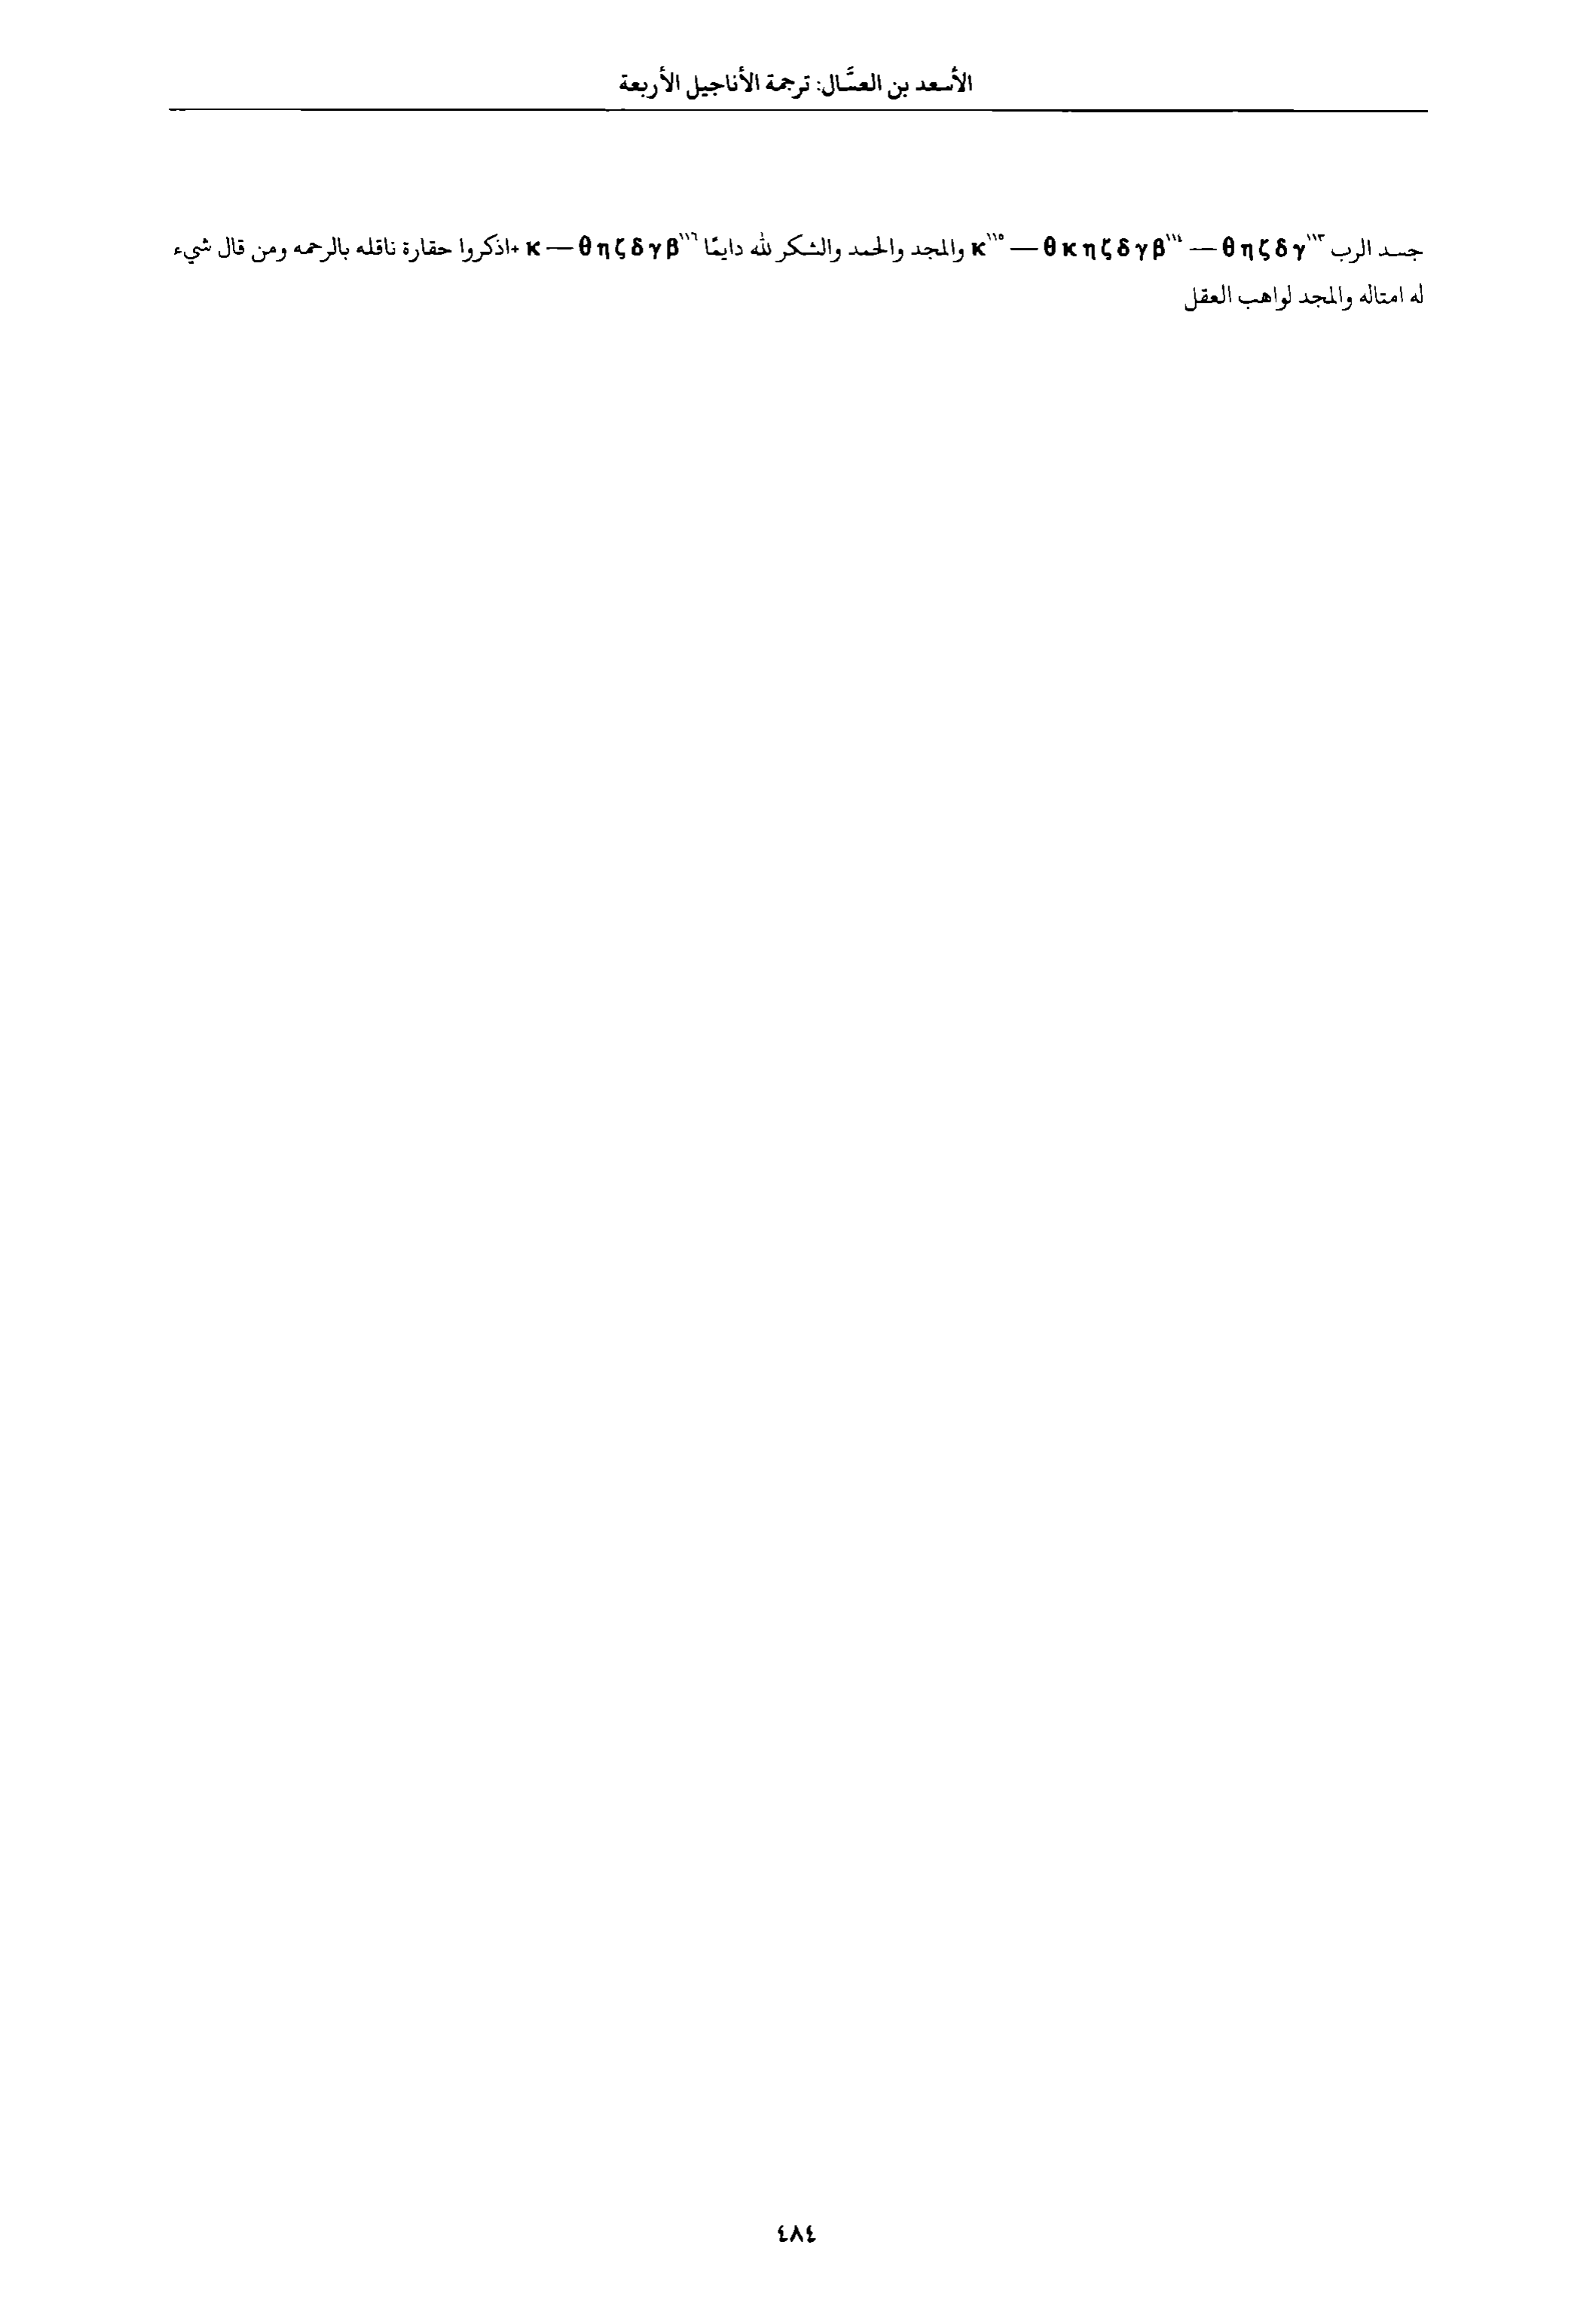 الأسعد بن العسَّال: ترجمة الأناجيل الأربعة
جسد الرب ١١٣γ δ ζ η θ — ١١٤β γ δ ζ η κ θ — ١١٥κ والمجد والحمد والشكر لله دايمًا ١١٦β γ δ ζ η θ — κ +اذكروا حقارة ناقله بالرحمه ومن قال شيء
له امتاله والمجد لواهب العقل
٤٨٤